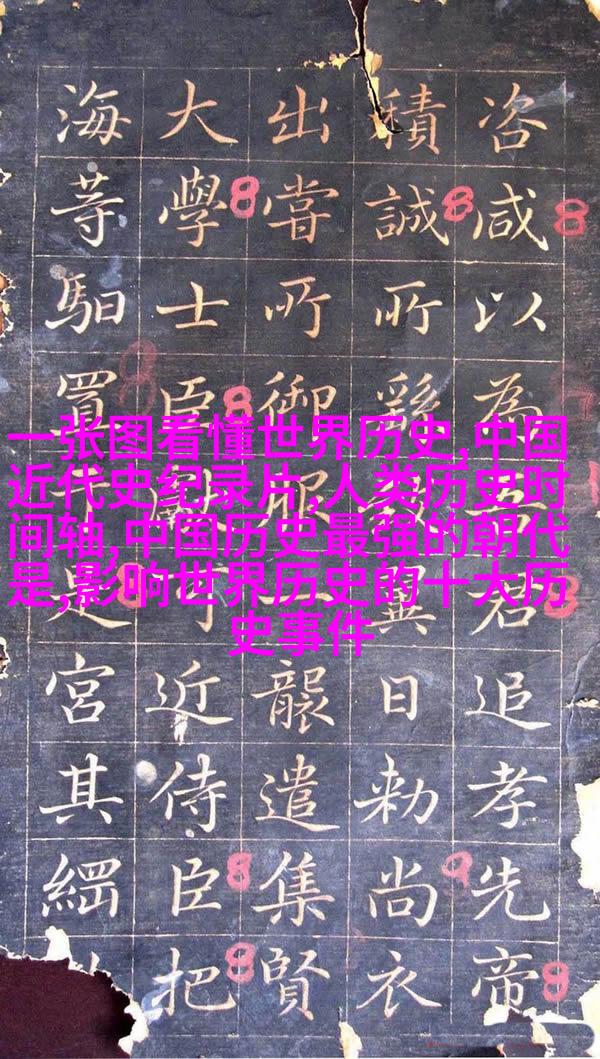 一张图看懂世界历史,中国
近代史纪录片,人类历史时
间轴,中国历史最强的朝代
是,影响世界历史的十大历
史事件
咨咸以為吾君追孝先帝
積誠所繇異日勑尚衣
出嘗所御服襲遣集賢
大學士臣可近侍臣把
海等馹置是宮其綱